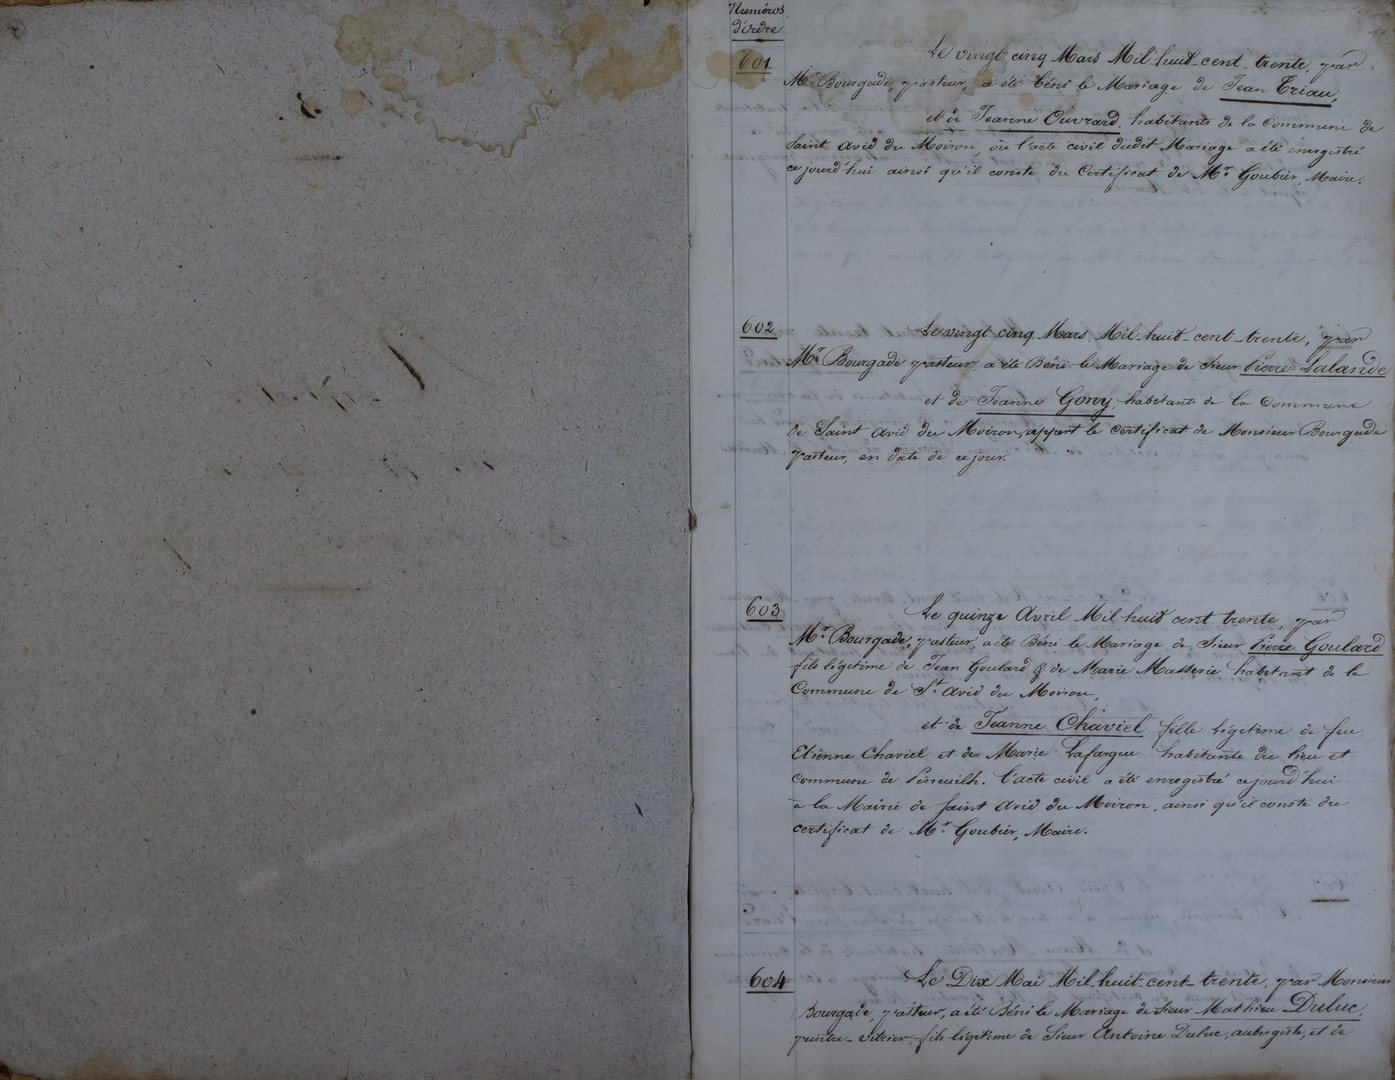 Numéros
d'Ordre
601.
Le vingt cinq Mars Mil-huit-cent trente, par
Mr. Bourgade, pasteur, a été béni le Mariage de Jean Triau,
et de Jeanne Ouvrard, habitants de la Commune de
Saint Avid du Moiron ou l'acte civil dudit Mariage a été enregistré
ce jourd'hui ainsi qu'il conste du Certificat de Mr. Goubier, Maire.
602
Le vingt cinq Mars Mil-huit-cent-trente, par
Mr. Bourgade pasteur a été Béni le Mariage de Sieur Pierre Lalande
et de Jeanne Gony, habitants de la Commune
de Saint Avid du Moiron, appert le certificat de Monsieur Bourgade
Pasteur, en date de ce jour.
603
Le quinze Avril Mil huit cent trente, par
Mr. Bourgade, pasteur, a été Béni le Mariage de Sieur Pierre Goulard
fils légitime de Jean Goulard & de Marie Masserie habitant de la
Commune de St. Avid du Moiron,
et de Jeanne Chaviel fille légitime de feu
Etienne Chaviel et de Marie Lafargue habitante du lieu et
Commune de Pineuilh. l'acte civil a été enregistré ce jourd'hui
à la Mairie de Saint Avid du Moiron, ainsi qu'il conste du
certificat de Mr. Goubier, Maire.
604
Le Dix Mai Mil-huit-cent-trente, par Monsieur
Bourgade, pasteur, a été Béni le Mariage de Sieur Mathieu Duluc,
peintre-vitrier, fils légitime de Sieur Antoine Duluc, aubergiste, et de